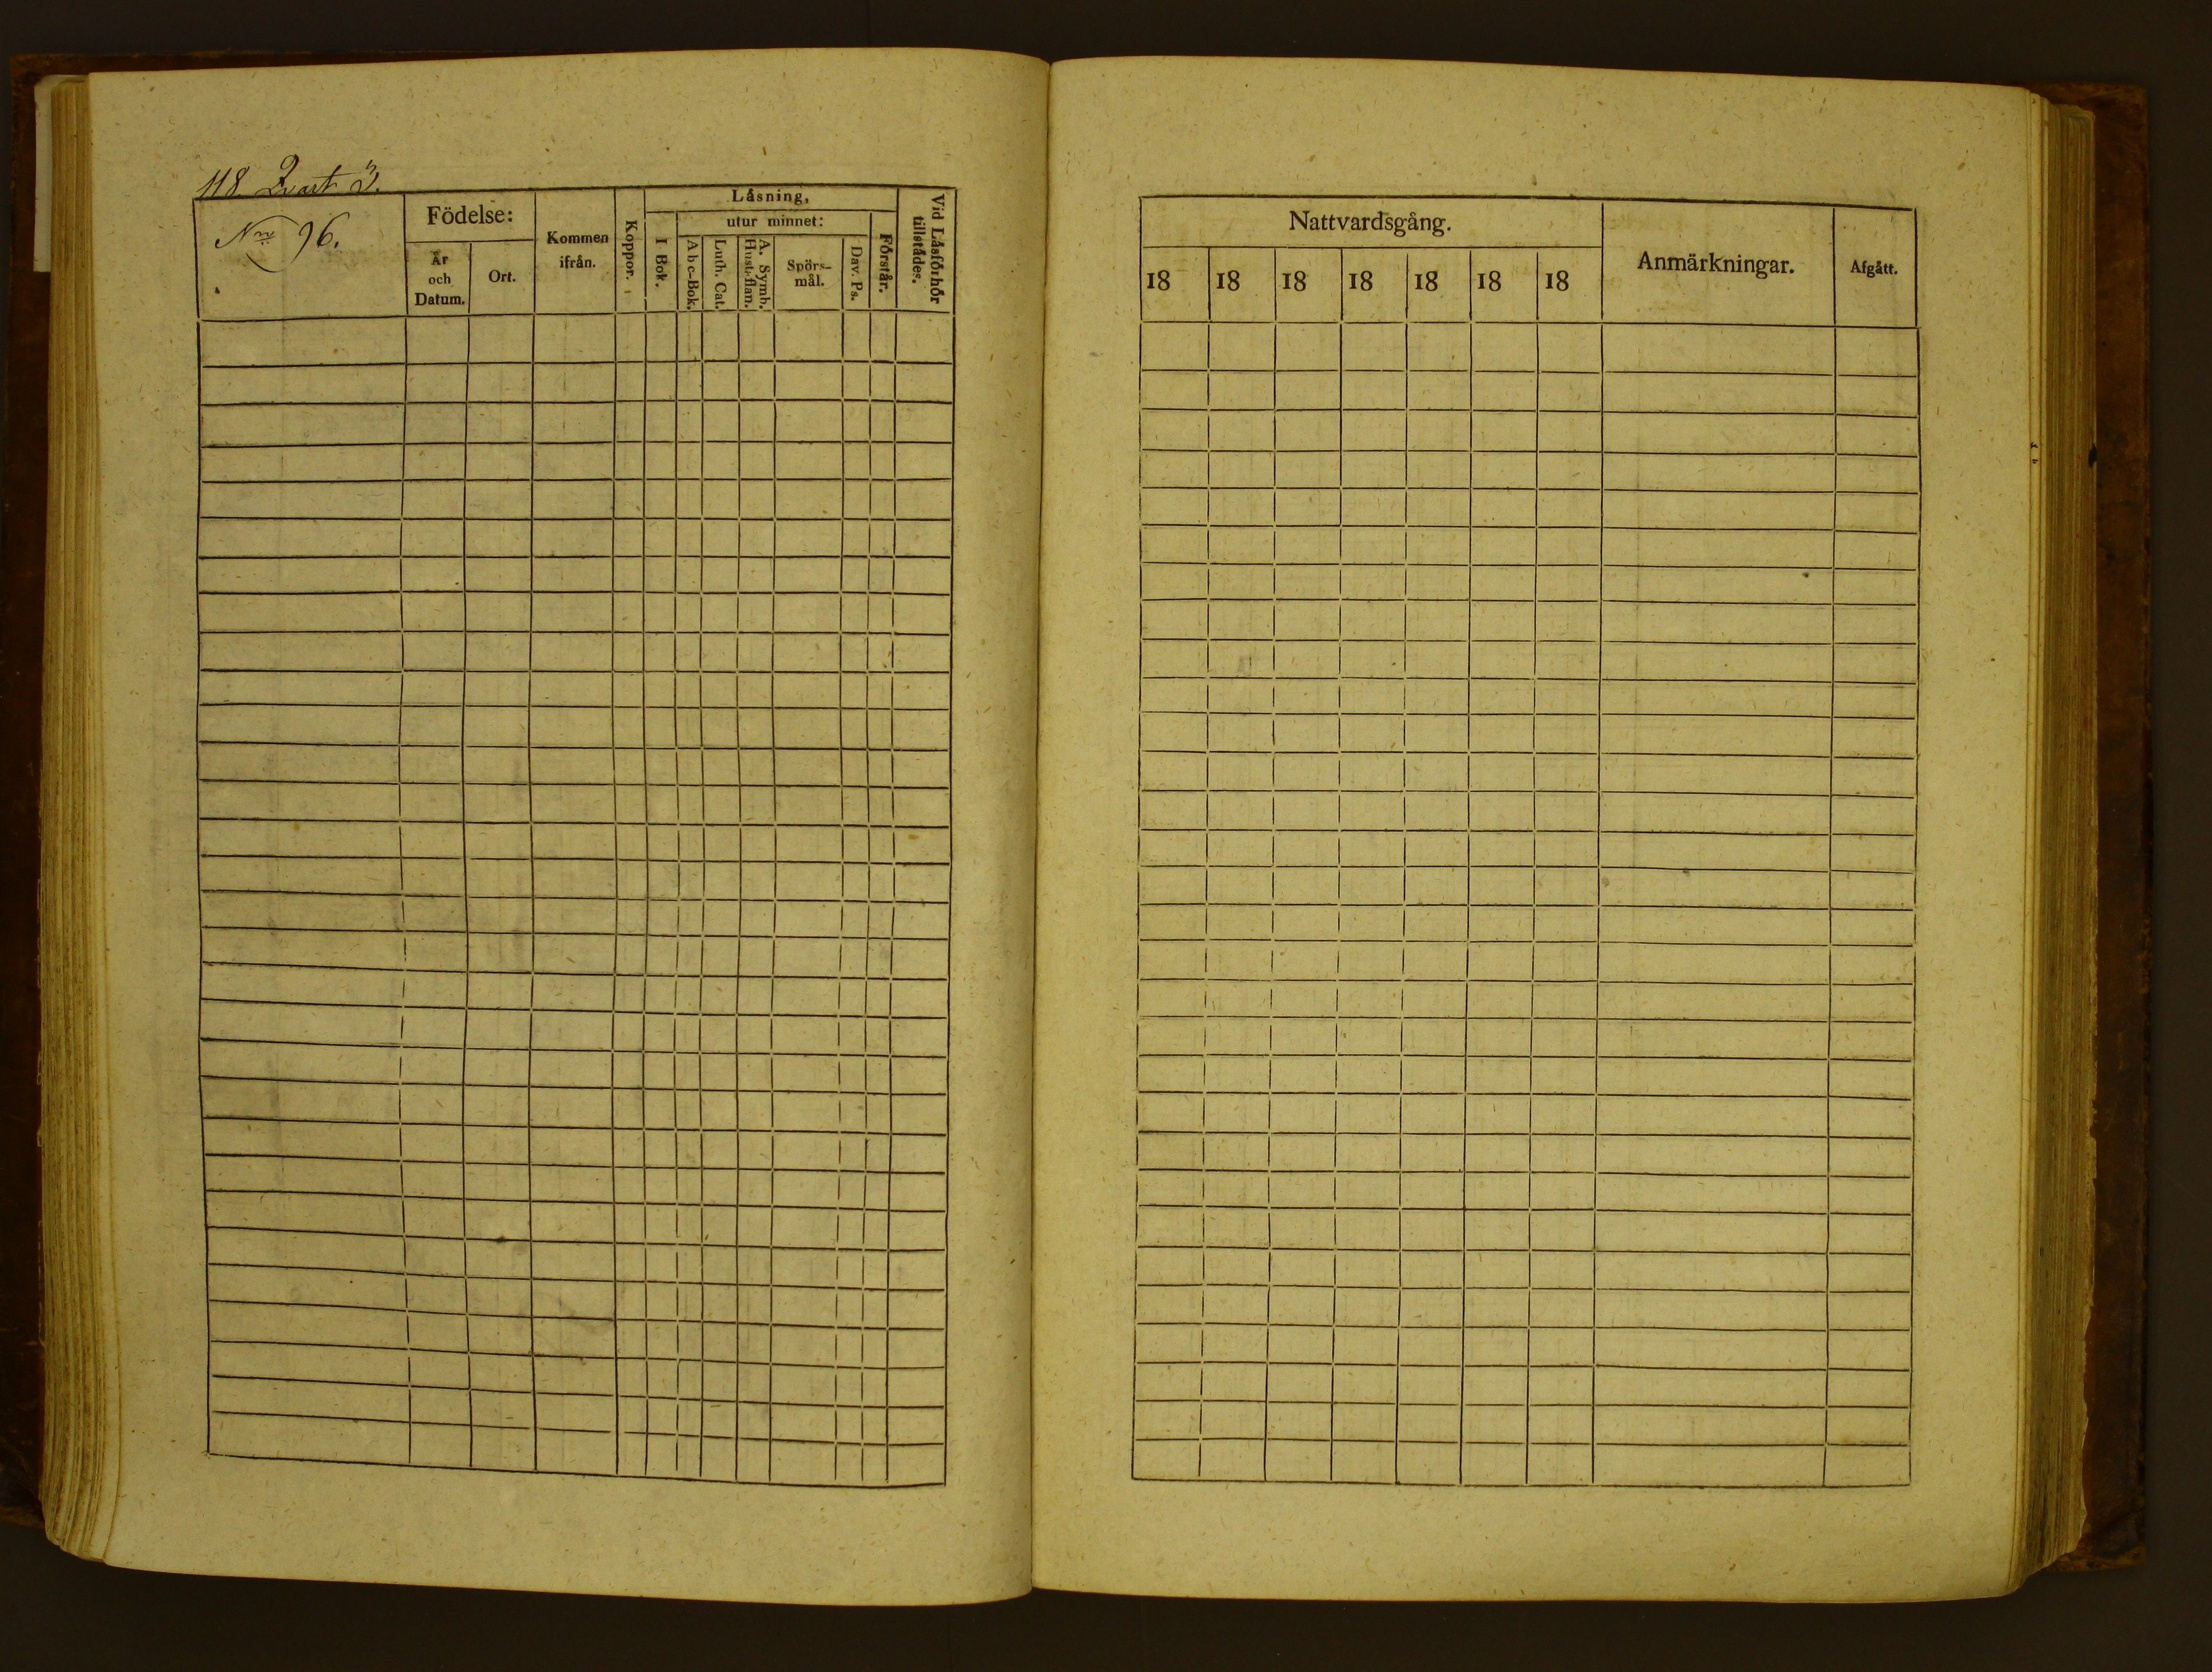 118 Qvart. 3.
Nro 96.
Födelse:
År
och
Datum.
Ort.
Kommen
ifrån.
Koppor.
Låsning,
I Bok.
utur minnet:
Abc-Bok.
Luth. Cat.
A. Symb.
Hust-flan.
Spörs-
mål.
Dav. Ps.
Förstår.
Vid Låsförhör
tillstådes.
Nattvardsgång.
18 18 18 18 18 18 18
Anmärkningar.
Afgått.